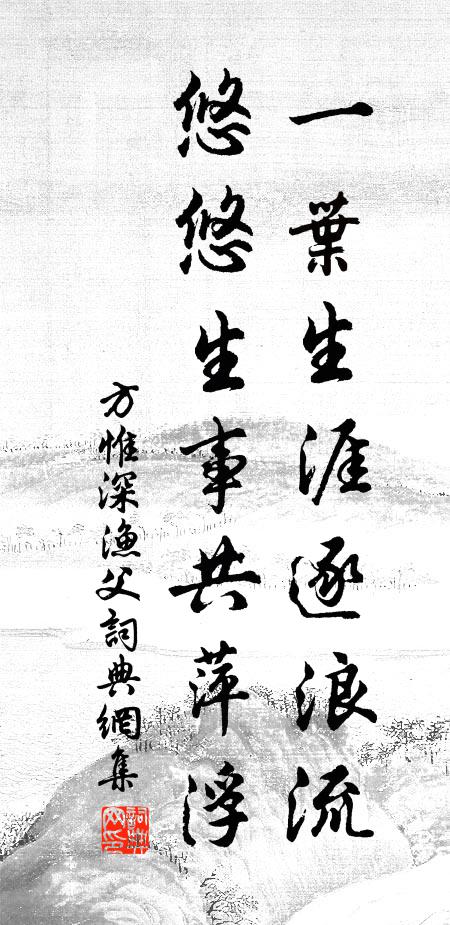 一葉生涯逐浪流
悠悠生事共萍浮
方惟深漁父詞典網集